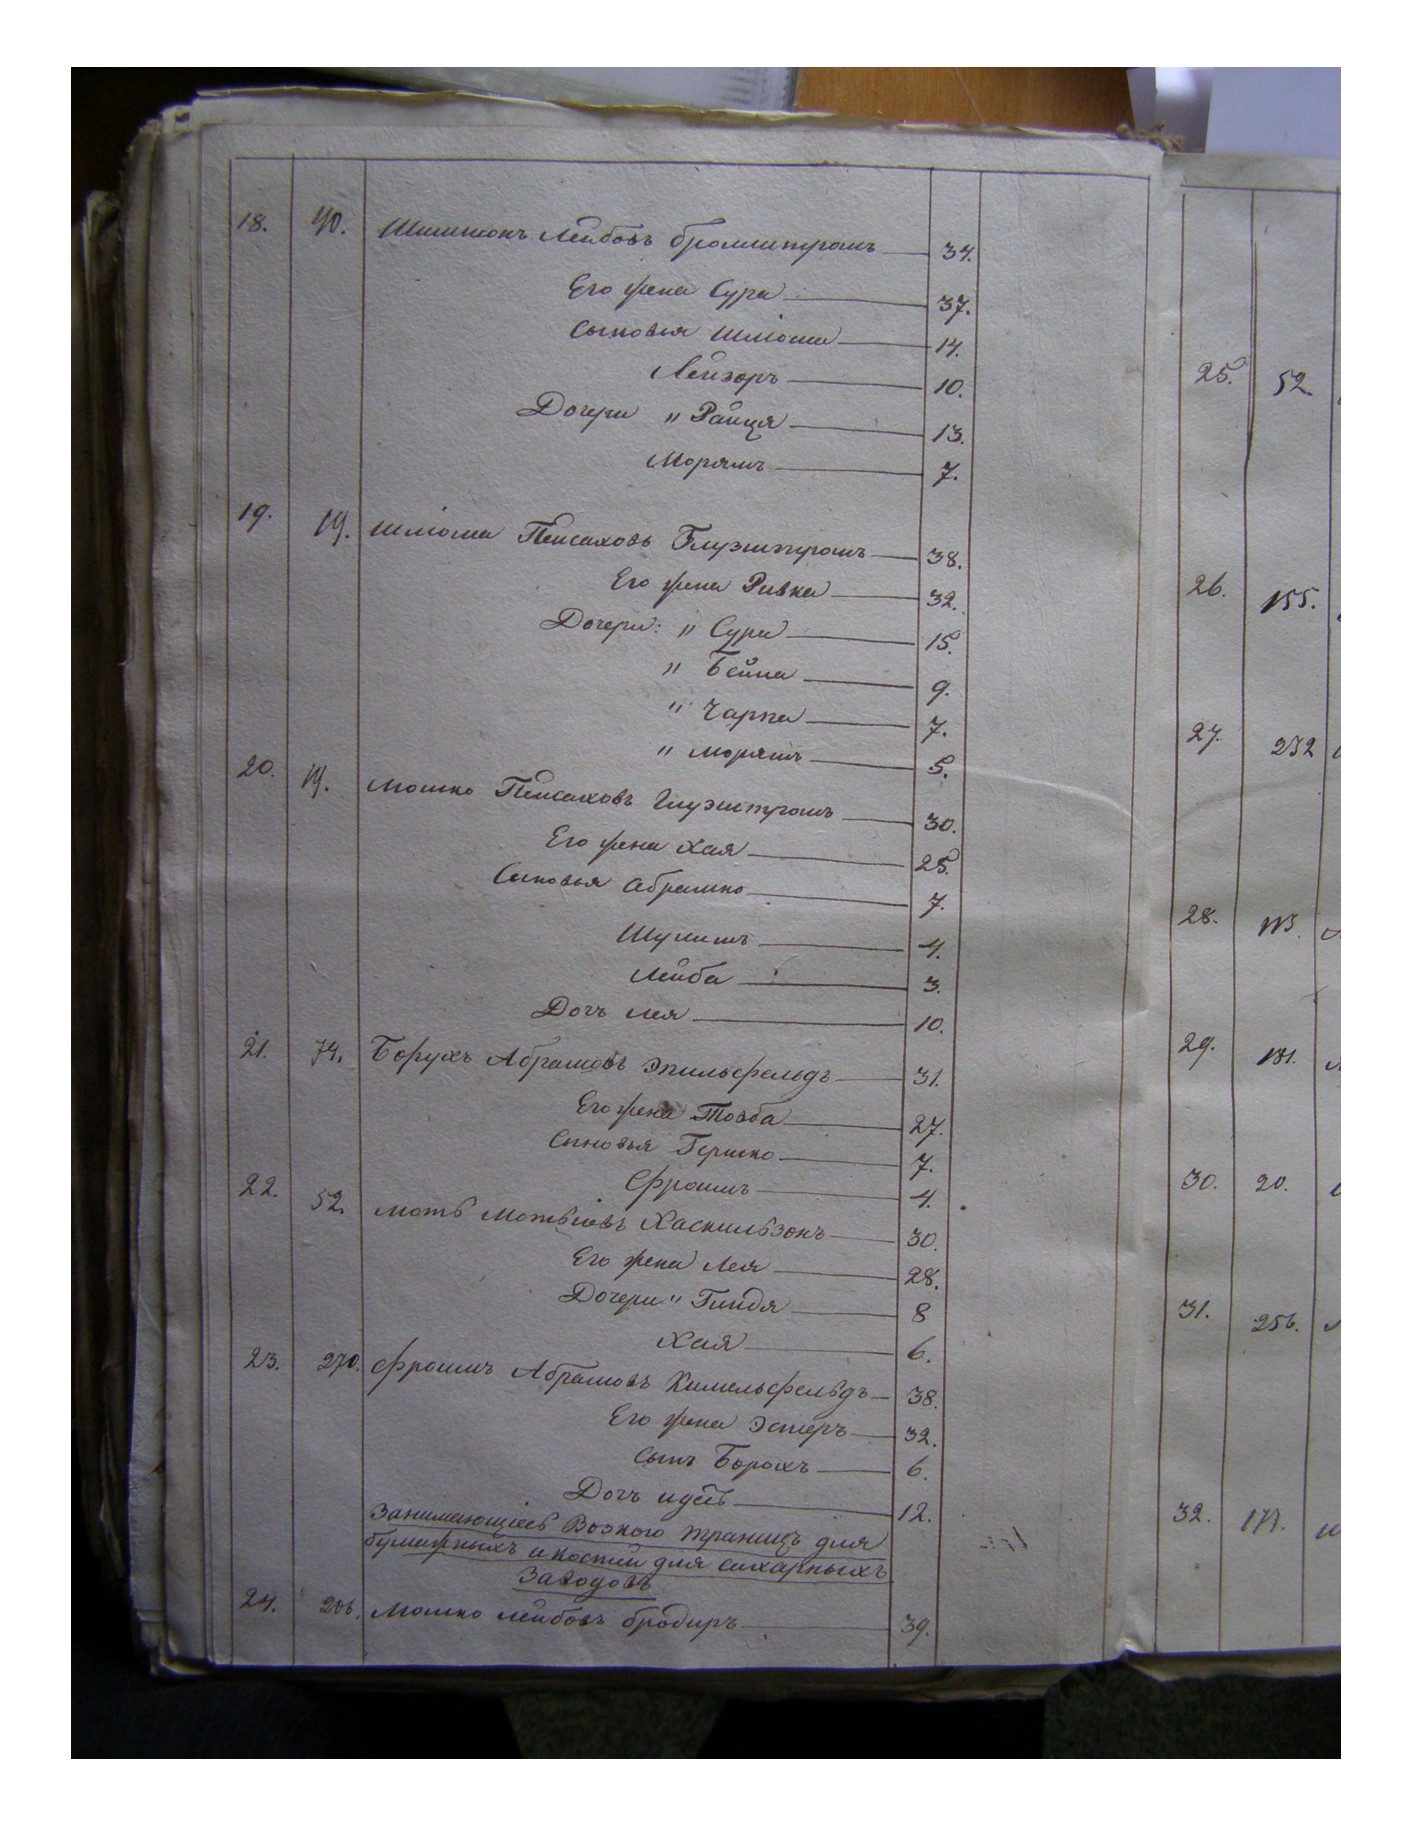 18. 40. Шимшонъ Лейбовъ Бромштромъ 34.
Его жена Сура 37.
Сыновья Шліома 14.
Лейзоръ 10.
Дочери " Райця 13.
Морямъ 7.
19. 19. Шліома Пейсаховъ Глузштромъ 38.
Его жена Ривка 32.
Дочери: " Сура 15.
" Бейла 9.
" Чарна 7.
" Морямъ 5.
20. 19. Мошко Пейсаховъ Глузштромъ 30.
Его жена Хая 25.
Сыновья Абрамко 7.
Шулимъ 4.
Лейба 3.
Дочь Лея 10.
21. 74. Борухъ Абрамовъ Эпильсфельдъ 31.
Его жена Товба 27.
Сыновья Гершко 7.
Фроимъ 4.
22. 52. Моть Мотьіовъ Хаскильзонъ 30.
Его жена Лея 28.
Дочери " Гиндя 8
Хая 6.
23. 270. Фроимъ Абрамовъ Кимельсфельдъ 38.
Его жена Эстеръ 32.
Сынъ Борохъ 6.
Дочь Идесь 12.
Занимающіесь Возкого тряницъ для
бумажныхъ и костий для сахарныхъ
Заводовъ
24. 206. Мошко Лейбовъ Бродиръ 39.
25. 52.
26. 155.
27. 232
28. 113.
29. 181.
30. 20.
31. 256.
32. 171.